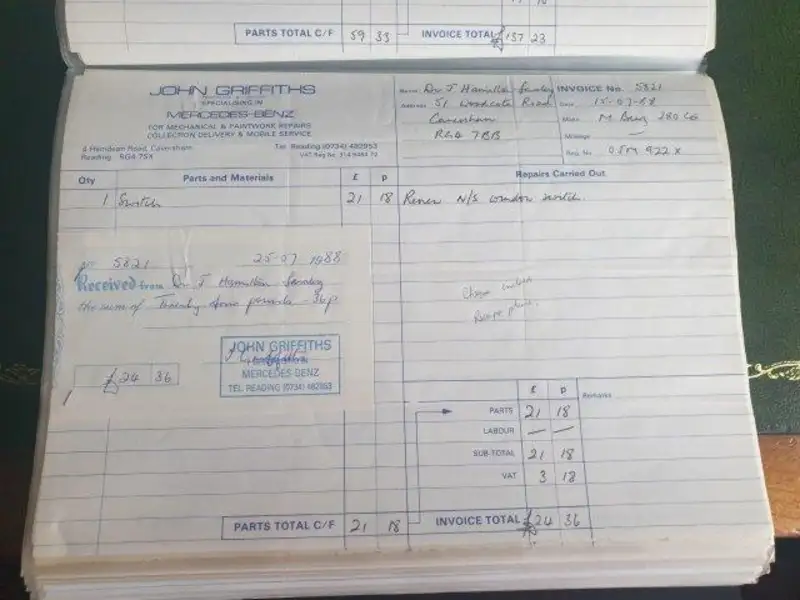 PARTS TOTAL C/F 59 33 INVOICE TOTAL £137 23
JOHN GRIFFITHS
SPECIALISING IN
MERCEDES-BENZ
FOR MECHANICAL & PAINTWORK REPAIRS
COLLECTION DELIVERY & MOBILE SERVICE
6 Hemdean Road, Caversham, Tel. Reading (0734) 482953
Reading RG4 7SX VAT Reg No
Name Dr J Hamilton
Address 51 Woodcote Road
Caversham
RG4 7BB
INVOICE No. 5821
Date 15-07-88
Make M Benz 280 CE
Mileage
Reg. No. 922 X
Qty Parts and Materials £ p Repairs Carried Out
1 Switch 21 18 Renew N/S window switch.
No 5821 25-07 1988
Received from Dr J Hamilton
the sum of Twenty four pounds - 36p
£24 36
JOHN GRIFFITHS
MERCEDES-BENZ
TEL READING (0734) 482953
please.
£ p Remarks
PARTS 21 18
LABOUR — —
SUB-TOTAL 21 18
VAT 3 18
PARTS TOTAL C/F 21 18 INVOICE TOTAL £24 36